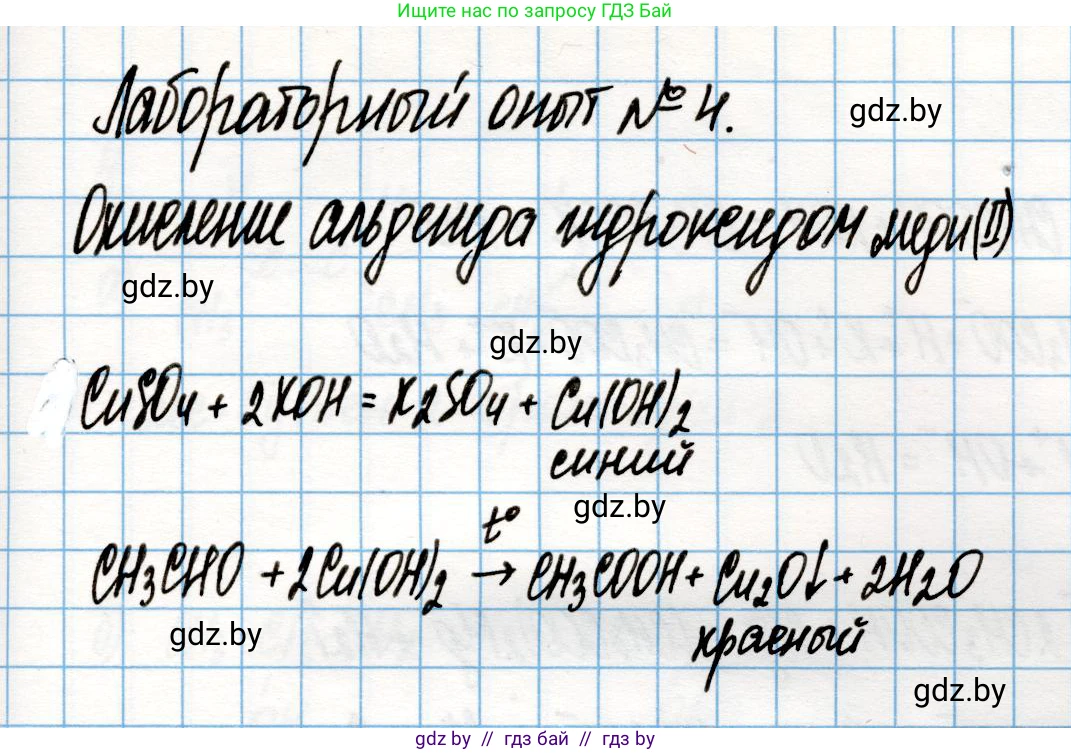 Ищите нас по запросу ГДЗ Бай
Лабораторный опыт № 4.
gdz.by
Окисление альдегида гидроксидом меди (II)
gdz.by
gdz.by
CuSO4 + 2KOH = K2SO4 + Cu(OH)2
синий
gdz.by
t°
CH3CHO + 2Cu(OH)2 → CH3COOH + Cu2O↓ + 2H2O
gdz.by
красный
gdz.by
gdz.by // гдз бай // gdz.by